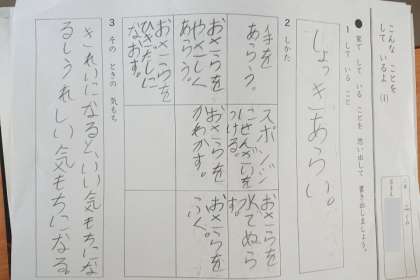 こんな ことを
して いるよ (1)
● 家で して いる ことを 思い出して 書き出しましょう。
1 して いる こと
しょっきあらい。
2 しかた
手を
あらう。
スポンジ
にせんざいを
つける。
おさらを
水でぬら
す。
おさらを
やさしく
あらう。
おさらを
かわかす。
おさらを
ふく。
おさらを
ひきだしに
なおす。
3 その ときの 気もち
きれいになると、いい気もちにな
るしうれしい気もちになる。